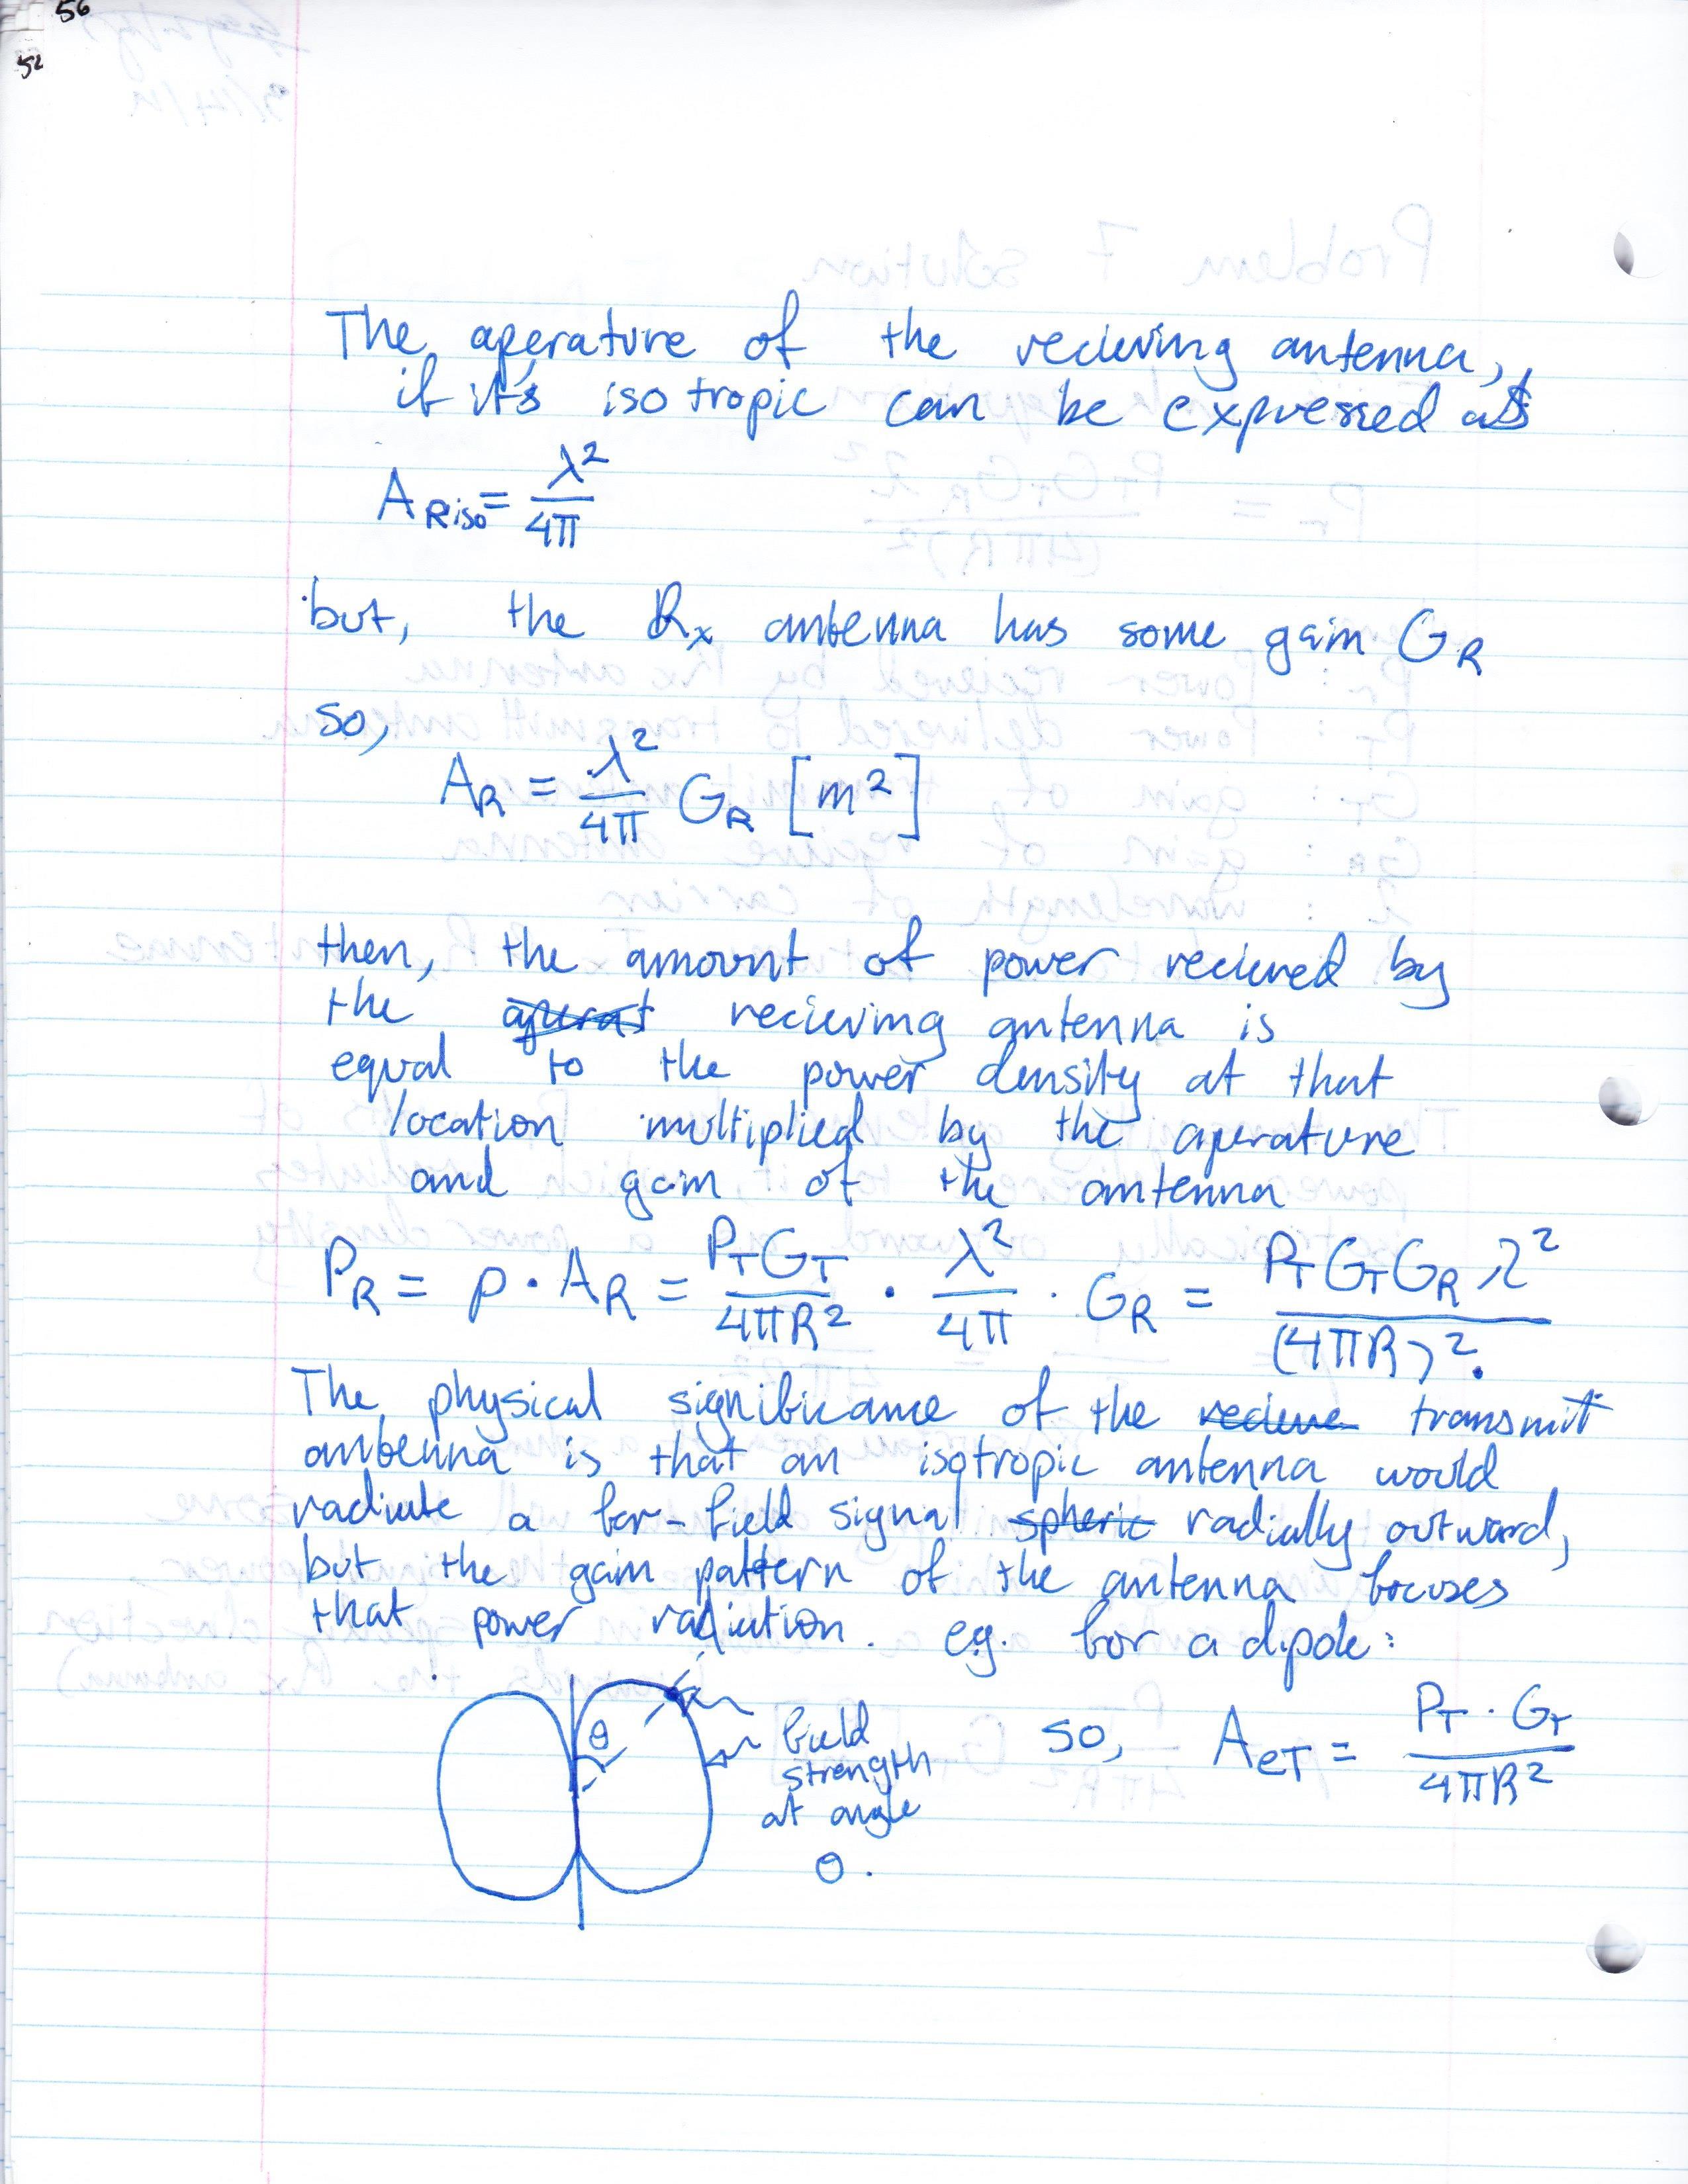 56
52
The aperature of the recieving antenna,
if it's isotropic can be expressed as
A_Riso = λ²/4π
but, the Rx antenna has some gain G_R
so,
A_R = λ²/4π G_R [m²]
then, the amount of power recieved by
the recieving antenna is
equal to the power density at that
location multiplied by the aperature
and gain of the antenna
P_R = p · A_R = P_T G_T/4πR² · λ²/4π · G_R = P_T G_T G_R λ²/(4πR)².
The physical significance of the recieve transmit
antenna is that an isotropic antenna would
radiate a far-field signal spheric radially outward,
but the gain pattern of the antenna focuses
that power radiation. eg. for a dipole:
θ
field
strength
at angle
θ.
so, A_eT = P_T · G_T/4πR²